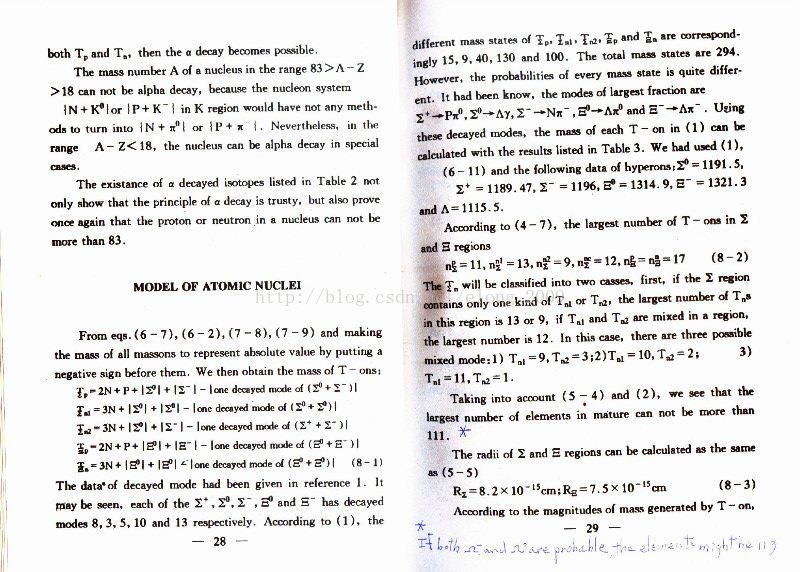 both Tp and Tn, then the α decay becomes possible.
The mass number A of a nucleus in the range 83>A-Z
>18 can not be alpha decay, because the nucleon system
{N+K⁰} or {P+K⁻} in K region would have not any meth-
ods to turn into {N+π⁰} or {P+π⁻}. Nevertheless, in the
range A-Z<18, the nucleus can be alpha decay in special
cases.
The existance of α decayed isotopes listed in Table 2 not
only show that the principle of α decay is trusty, but also prove
once again that the proton or neutron in a nucleus can not be
more than 83.
MODEL OF ATOMIC NUCLEI
From eqs. (6-7), (6-2), (7-8), (7-9) and making
the mass of all massons to represent absolute value by putting a
negative sign before them. We then obtain the mass of T-ons:
=2N+P+|Σ⁰|+|Σ⁻|-|one decayed mode of (Σ⁰+Σ⁻)|
=3N+|Σ⁰|+|Σ⁰|-|one decayed mode of (Σ⁰+Σ⁰)|
=3N+|Σ⁰|+|Σ⁻|-|one decayed mode of (Σ⁺+Σ⁻)|
=2N+P+|Ξ⁰|+|Ξ⁻|-|one decayed mode of (Ξ⁰+Ξ⁻)|
=3N+|Ξ⁰|+|Ξ⁰|-|one decayed mode of (Ξ⁰+Ξ⁰)| (8-1)
The data of decayed mode had given in reference 1. It
may be seen, each of the Σ⁺, Σ⁰, Σ⁻, Ξ⁰ and Ξ⁻ has decayed
modes 8, 3, 5, 10 and 13 respectively. According to (1), the
— 28 —
different mass states of and are correspond-
ingly 15, 9, 40, 130 and 100. The total mass states are 294.
However, the probabilities of every mass state is quite differ-
ent. It had been know, the modes of largest fraction are
Σ⁺→Pπ⁰, Σ⁰→Λγ, Σ⁻→Nπ⁻, Ξ⁰→Λπ⁰ and Ξ⁻→Λπ⁻. Using
these decayed modes, the mass of each T-on in (1) can be
calculated with the results listed in Table 3. We had used (1),
(6-11) and the following data of hyperons: Σ⁰=1191.5,
Σ⁺=1189.47, Σ⁻=1196, Ξ⁰=1314.9, Ξ⁻=1321.3
and Λ=1115.5.
According to (4-7), the largest number of T-ons in Σ
and Ξ regions
=11, =13, =9, =12, =17 (8-2)
The will be classified into two casses, first, if the Σ region
contains only one kind of Tn1 or Tn2, the largest number of Tns
in this region is 13 or 9, if Tn1 and Tn2 are mixed in a region,
the largest number is 12. In this case, there are three possible
mixed mode: 1) Tn1=9, Tn2=3; 2) Tn1=10, Tn2=2; 3)
Tn1=11, Tn2=1.
Taking into account (5-4) and (2), we see that the
largest number of elements in mature can not be more than
111. *
The radii of Σ and Ξ regions can be calculated as the same
as (5-5)
RΣ=8.2×10⁻¹⁵cm; RΞ=7.5×10⁻¹⁵cm (8-3)
According to the magnitudes of mass generated by T-on,
— 29 —
*
If both and are probable, the elements might be 119